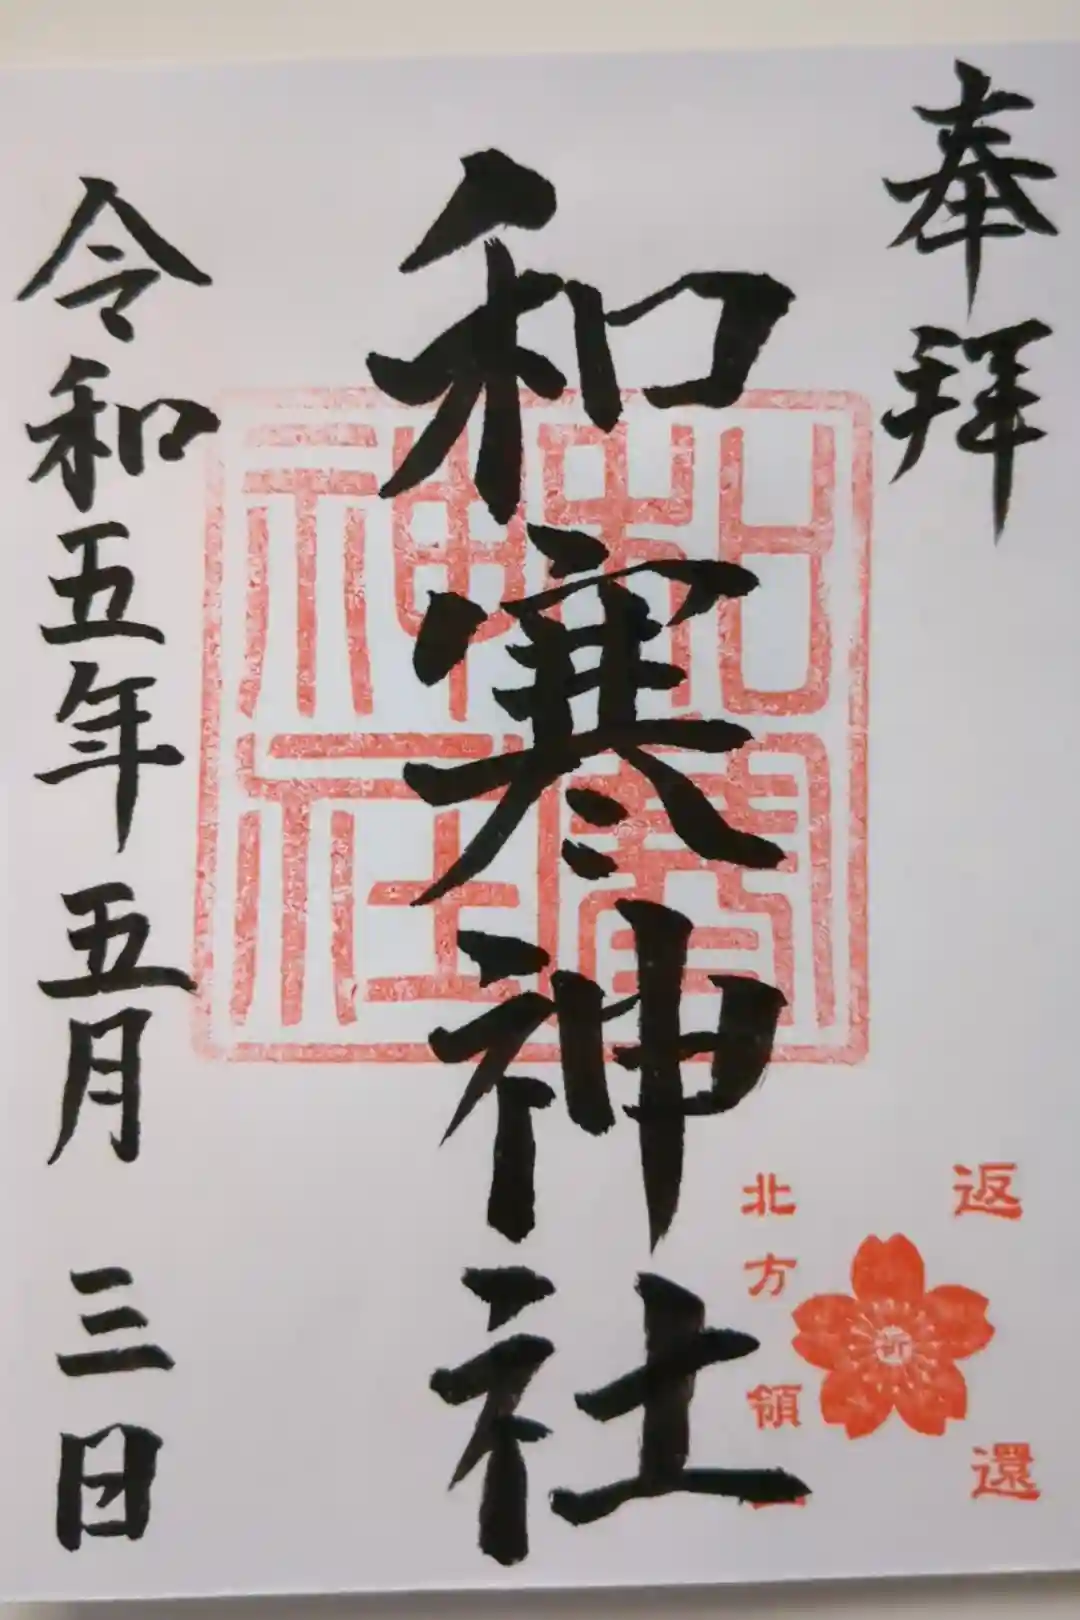 奉拝
返還
祈
北方領土
和寒神社
和寒神社
令和五年 五月 三日